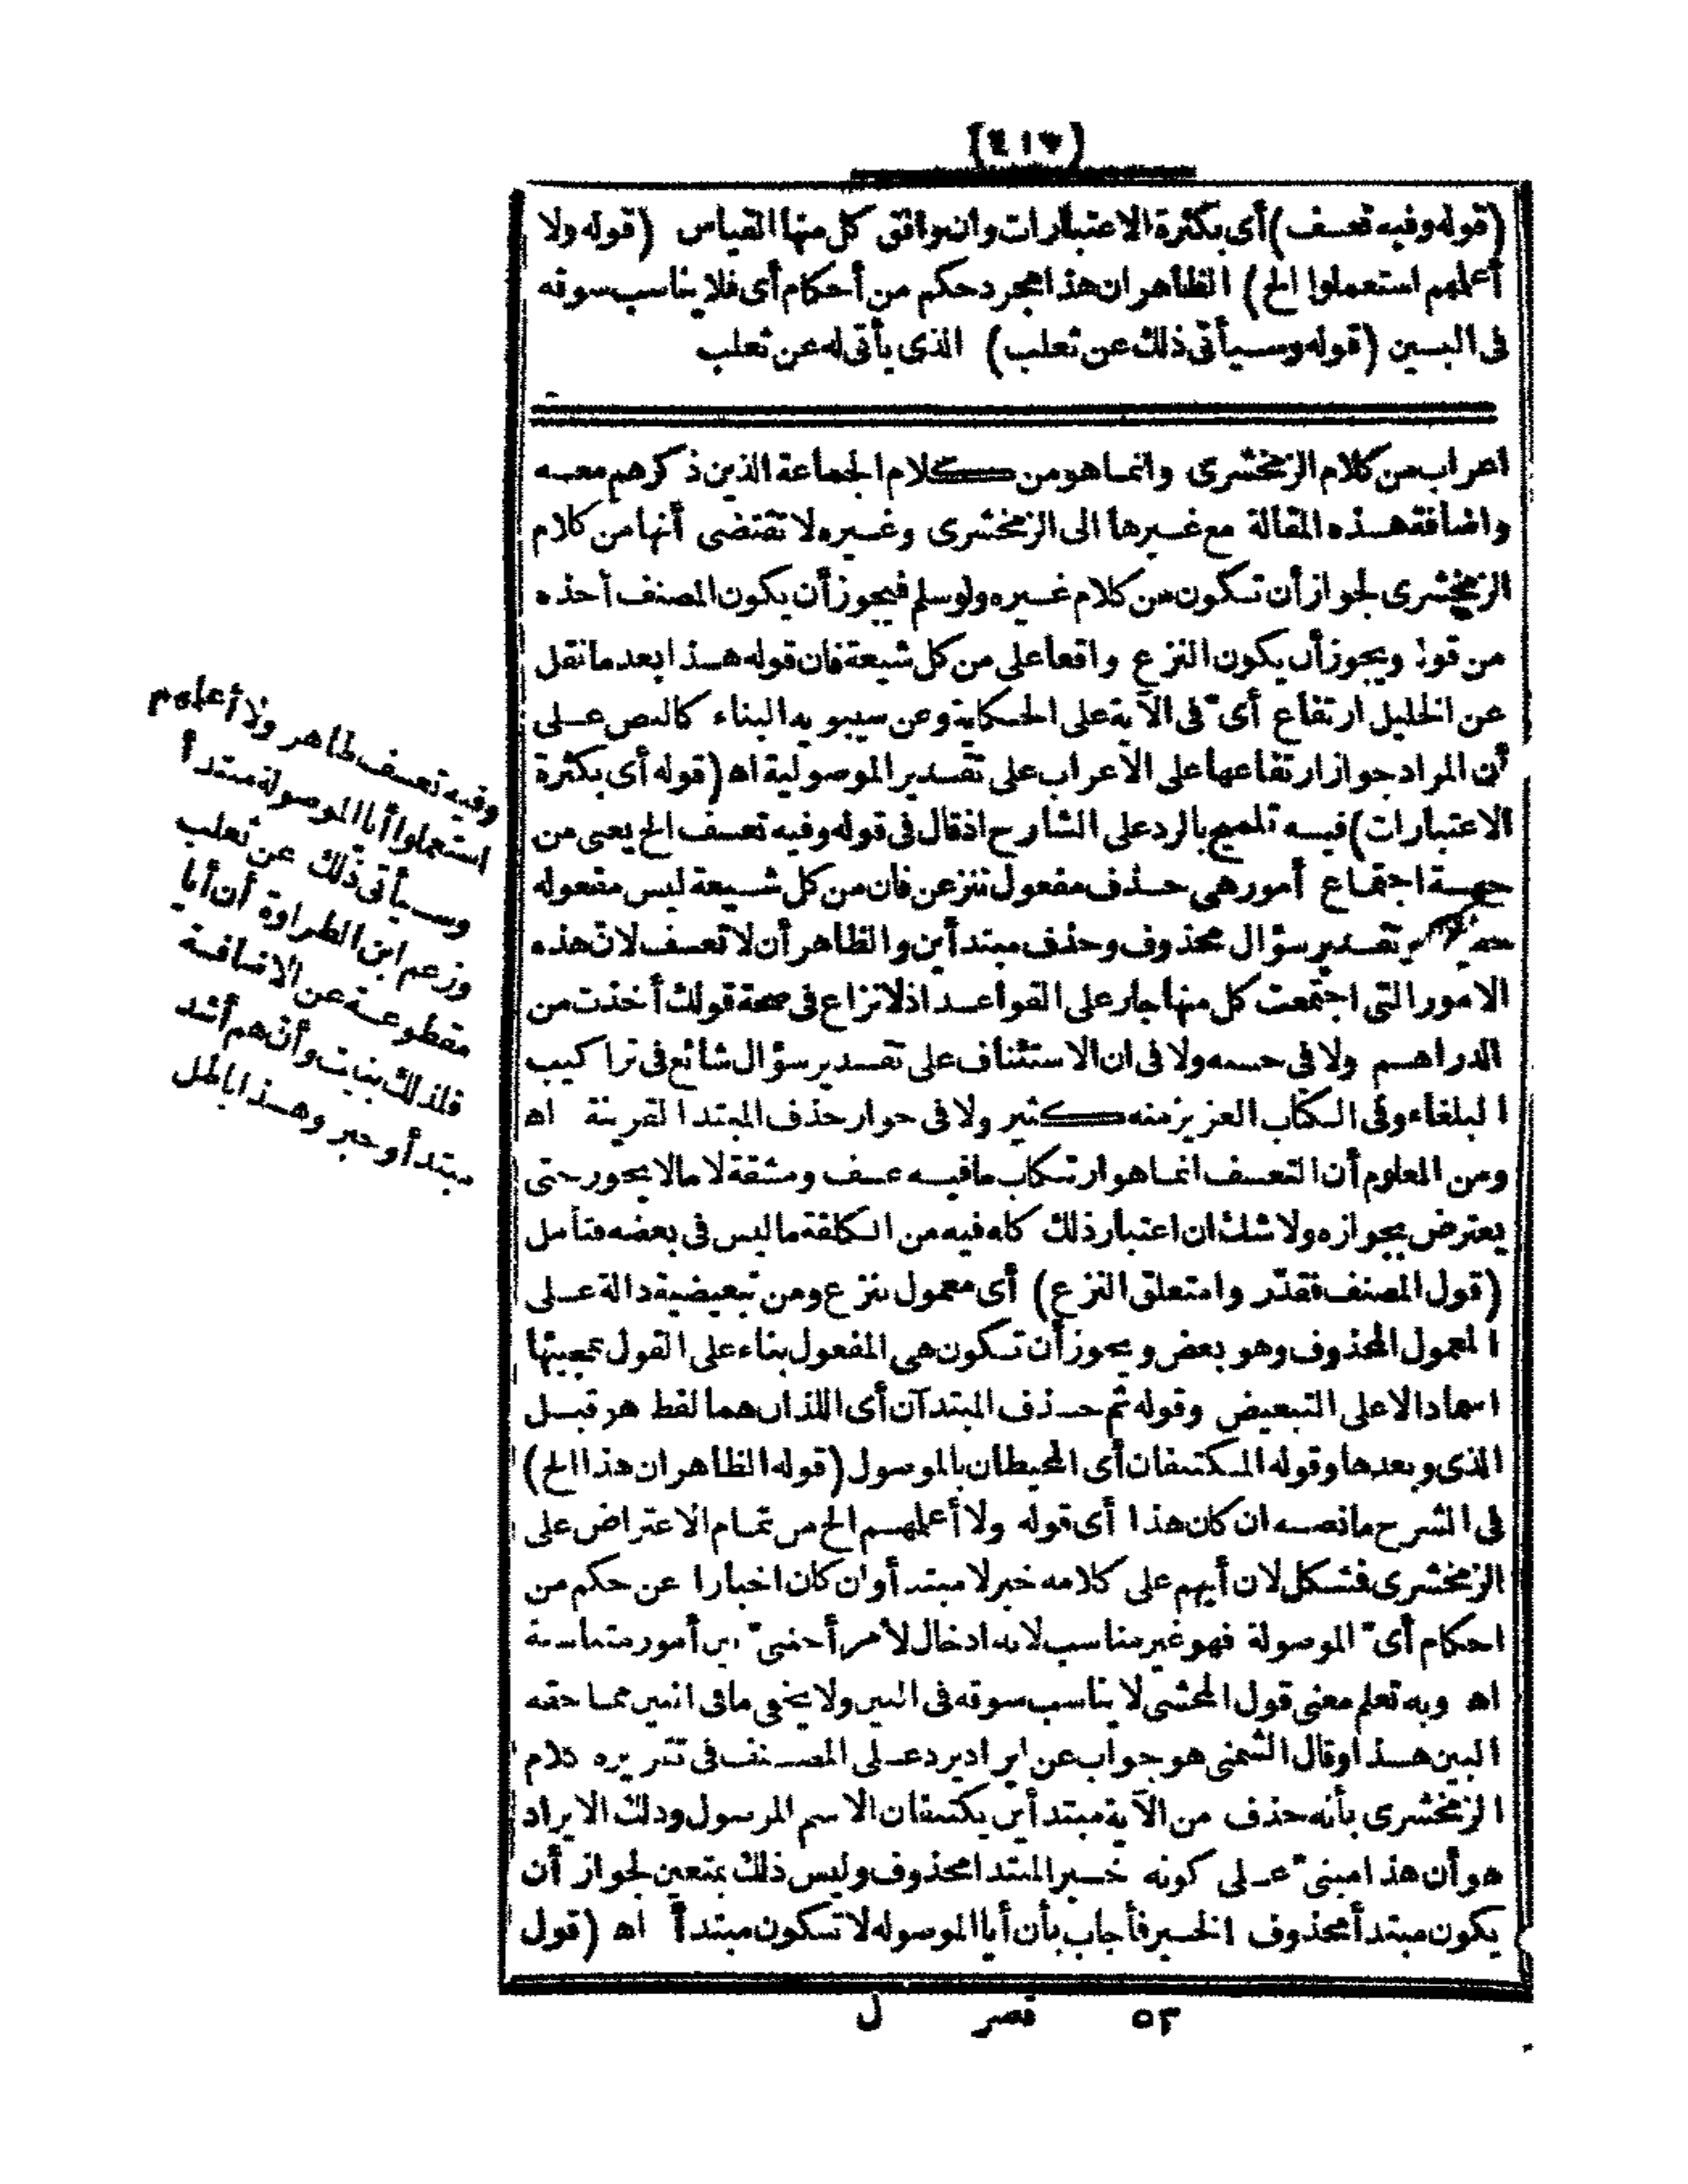 (٤١٧)
(قوله وفيه تعسف) أى بكثرة الاعتبارات وان وافق كل منها القياس (قوله ولا
أعلمهم استعملوا الخ) الظاهر ان هذا مجرد حكم من أحكام أى فلا يناسب سوقه
فى البين (قوله وسيأتى ذلك عن ثعلب) الذى يأتى له عن ثعلب
اعراب من كلام الزمخشرى وانما هو من كلام الجماعة الذين ذكرهم معه
واضافة هذه المقالة مع غيرها الى الزمخشرى وغيره لا تقتضى أنها من كلام
الزمخشرى لجواز أن تكون من كلام غيره ولو سلم فيجوز أن يكون المصنف أخذه
من قوله ويجوز أن يكون النزع واقعا على من كل شيعة فان قوله هذا بعد ما نقل
عن الخليل ارتفاع أىّ فى الآية على الحكاية وعن سيبويه البناء كالنص على
أن المراد جواز ارتفاعها على الاعراب على تقدير الموصولية اه (قوله أى بكثرة
الاعتبارات) فيه تلميح بالرد على الشارح اذ قال فى قوله وفيه تعسف الخ يعنى من
جهة اجتماع أمور هى حذف مفعول ننزعن فان من كل شيعة ليس مفعوله
تقدير سؤال محذوف وحذف مبتدأين والظاهر أن لا تعسف لان هذه
الامور التى اجتمعت كل منها جار على القواعد اذ لا نزاع فى صحة قولك أخذت من
الدراهم ولا فى حسمه ولا فى ان الاستئناف على تقدير سؤال شائع فى تراكيب
البلغاء وفى الكتاب العزيز منه كثير ولا فى جواز حذف المبتدا لقرينة اه
ومن المعلوم أن التعسف انما هو ارتكاب ما فيه عسف ومشقة لا ما لا يجوز حتى
يعترض بجوازه ولا شك ان اعتبار ذلك كله فيه من الكلفة ما ليس فى بعضه فتأمل
(قول المصنف فقدّر وا متعلق النزع) أى معمول ننزع ومن تبعيضية دالة على
المعمول المحذوف وهو بعض ويجوز أن تكون هى المفعول بناء على القول بمجيئها
اسما دالا على التبعيض وقوله ثم حذف المبتدآن أى اللذان هما لفظ هو قبل
الذى وبعدها وقوله المكتنفان أى المحيطان بالموصول (قوله الظاهر ان هذا الخ)
فى الشرح ما نصه ان كان هذا أى قوله ولا أعلمهم الخ من تمام الاعتراض على
الزمخشرى فشكل لان أيهم على كلامه خبر لا مبتدأ وان كان اخبارا عن حكم من
احكام أىّ الموصولة فهو غير مناسب لانه ادخال لأمر أجنبىّ بين أمور متناسبة
اه وبه تعلم معنى قول المحشى لا يناسب سوقه فى البين ولا يخفى ما فى البين مما حقه
البين هذا وقال الشمنى هو جواب عن ايراد يرد على المصنف فى تقريره كلام
الزمخشرى بأنه حذف من الآية مبتدأين يكتنفان الاسم الموصول وذلك الايراد
هو أن هذا مبنىّ على كونه خبرا لمبتدا محذوف وليس ذلك بمتعين لجواز أن
يكون مبتدأ محذوف الخبر فأجاب بأن أيا الموصوله لا تكون مبتدأ اه (قول
٥٣ قصر ل
وفيه تعسف ظاهر ولا أعلمهم
استعملوا أيا الموصولة مبتدأ
وسيأتى ذلك عن ثعلب
وزعم ابن الطراوة أن أيا
مقطوعة عن الاضافة
فلذلك بنيت وأن هم أشد
مبتدأ وخبر وهذا باطل